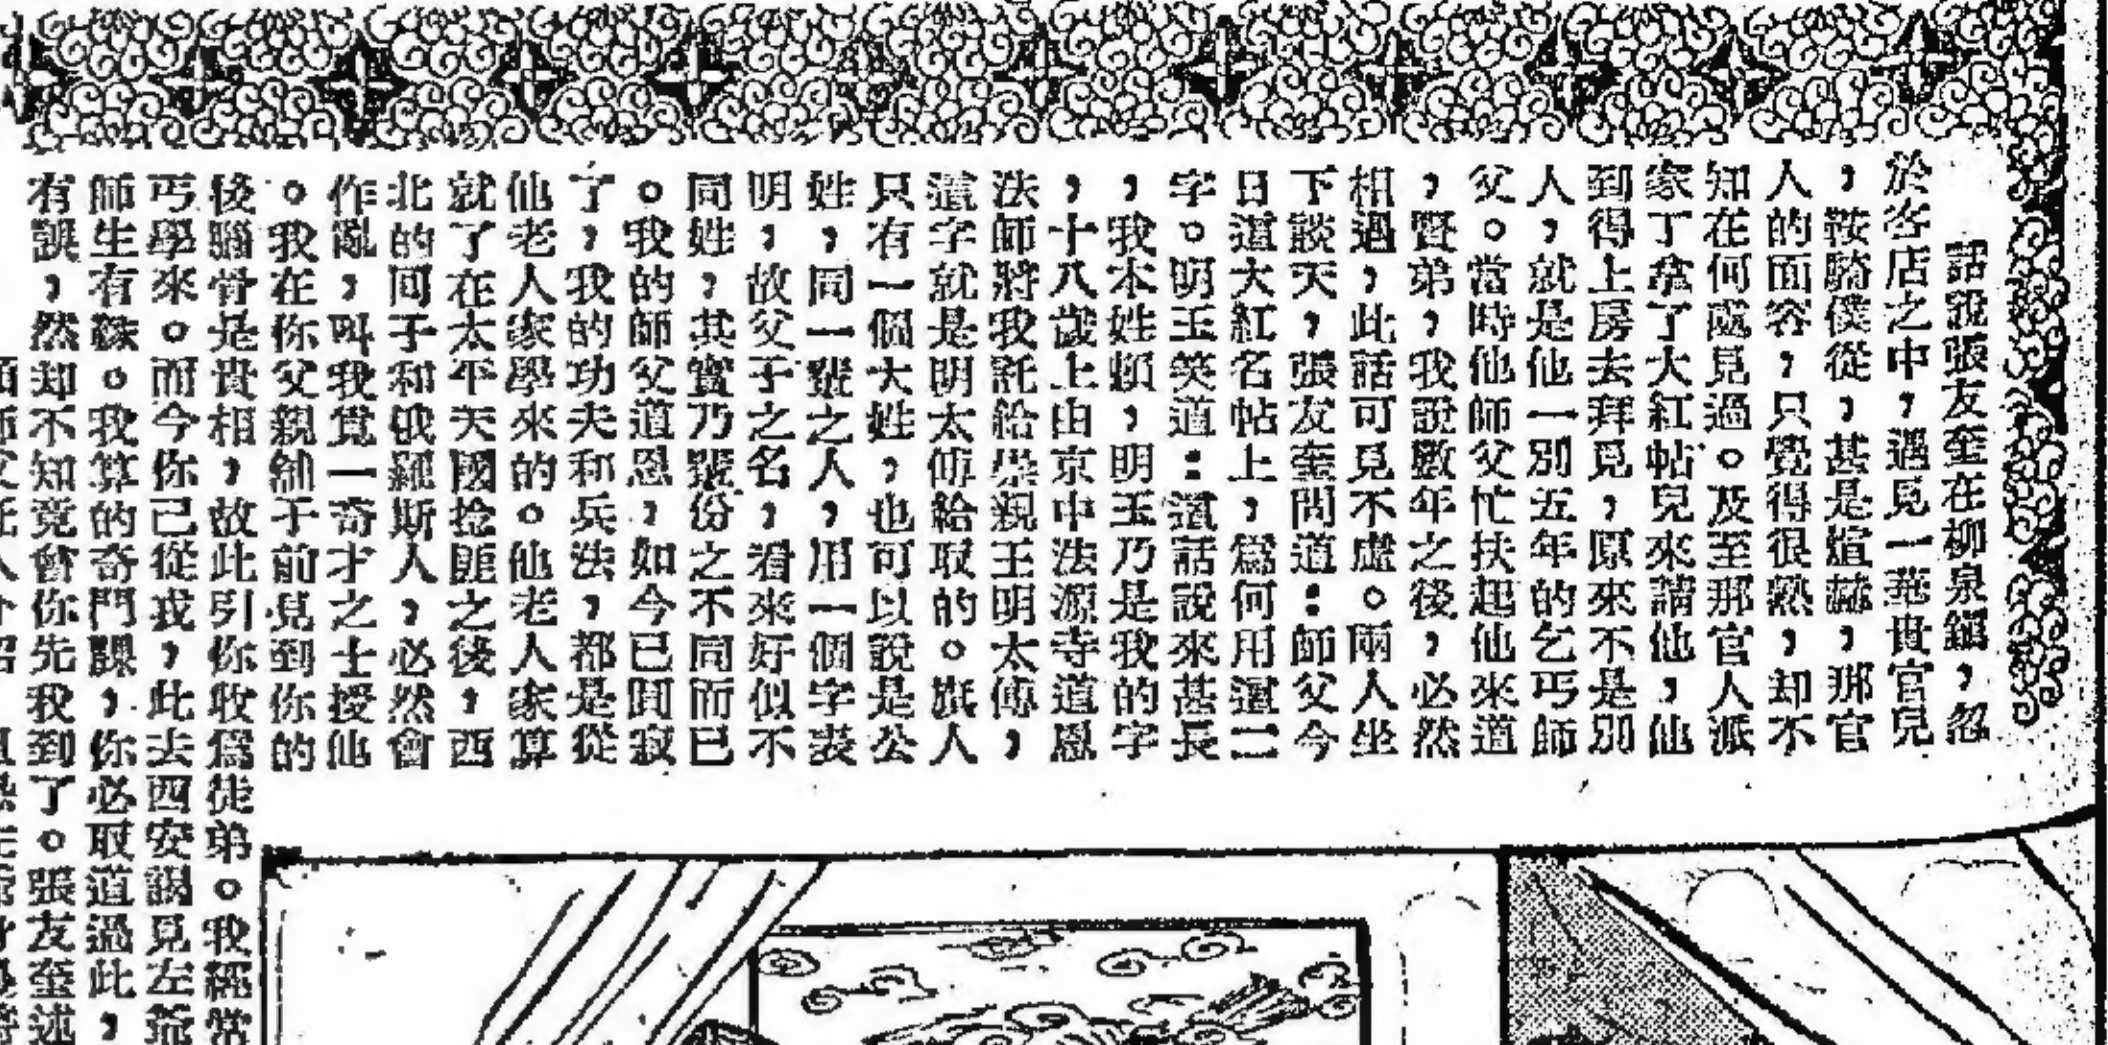 話說張友奎在柳泉鎭，忽
於客店之中，遇見一華貴官兒
，鞍騎僕從，甚是煊赫，那官
人的面容，只覺得很熟，却不
知在何處見過。及至那官人派
家丁拿了大紅帖兒來請他，他
到得上房去拜覓，原來不是別
人，就是他一別五年的乞丐師
父。當時他師父忙扶起他來道
，賢弟，我說數年之後，必然
相遇，此話可見不虛。兩人坐
下談天，張友奎問道：師父今
日這大紅名帖上，爲何用這二
字。明玉笑道：這話說來甚長
，我本姓頓，明玉乃是我的字
，十八歲上由京中法源寺道恩
法師將我託給崇親王明太傅，
這字就是明太傅給取的。旗人
只有一個大姓，也可以說是公
姓，同一輩之人，用一個字表
明，故父子之名，看來好似不
同姓，其實乃輩份之不同而已
。我的師父道恩，如今已圓寂
了，我的功夫和兵法，都是從
他老人家學來的。他老人家算
就了在太平天國捻匪之後，西
北的回子和俄羅斯人，必然會
作亂，叫我覓一奇才之士授他
。我在你父親舖子前見到你的
後腦骨是貴相，故此引你收爲徒弟。我經常
丐學來。而今你已從我，此去西安謁見左爺
師生有緣。我算的奇門課，你必取道過此，
有誤，然却不知竟會你先我到了。張友奎述